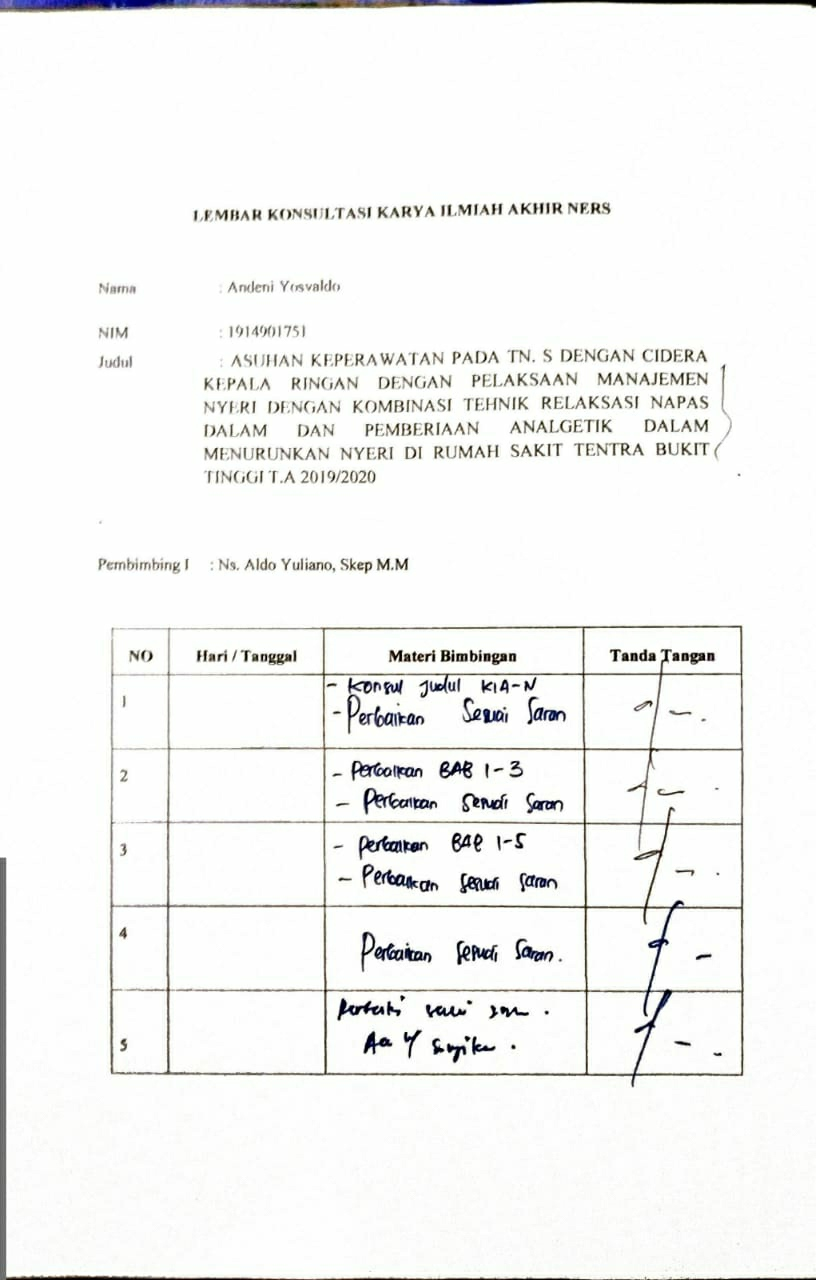 LEMBAR KONSULTASI KARYA ILMIAH AKHIR NERS
Nama : Andeni Yosvaldo
NIM : 1914901751
Judul : ASUHAN KEPERAWATAN PADA TN. S DENGAN CIDERA
KEPALA RINGAN DENGAN PELAKSAAN MANAJEMEN
NYERI DENGAN KOMBINASI TEHNIK RELAKSASI NAPAS
DALAM DAN PEMBERIAAN ANALGETIK DALAM
MENURUNKAN NYERI DI RUMAH SAKIT TENTRA BUKIT
TINGGI T.A 2019/2020
Pembimbing I : Ns. Aldo Yuliano, Skep M.M
NO Hari / Tanggal Materi Bimbingan Tanda Tangan
1 - Konsul judul KIA-N
- Perbaikan Sesuai Saran
2 - Perbaikan BAB 1-3
- Perbaikan sesuai saran
3 - Perbaikan BAB 1-5
- Perbaikan sesuai saran
4 Perbaikan sesuai saran.
5